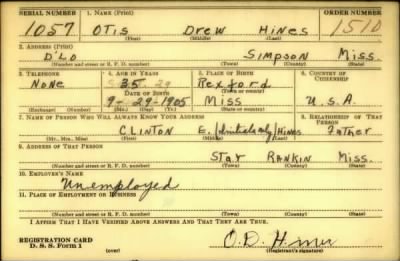 SERIAL NUMBER 1. NAME (Print) ORDER NUMBER
1057 OTIS DREW HINES 1510
(First) (Middle) (Last)
2. ADDRESS (Print)
D'LO SIMPSON MISS.
(Number and street or R. F. D. number) (Town) (County) (State)
3. TELEPHONE 4. AGE IN YEARS 5. PLACE OF BIRTH 6. COUNTRY OF CITIZENSHIP
NONE 35 Rexford
DATE OF BIRTH (Town or county)
9-29-1905 MISS U.S.A.
(Exchange) (Number) (Mo.) (Day) (Yr.) (State or country)
7. NAME OF PERSON WHO WILL ALWAYS KNOW YOUR ADDRESS 8. RELATIONSHIP OF THAT PERSON
CLINTON E. (initial only) Hines Father
(Mr., Mrs., Miss) (First) (Middle) (Last)
9. ADDRESS OF THAT PERSON
Star RANKIN MISS.
(Number and street or R. F. D. number) (Town) (County) (State)
10. EMPLOYER'S NAME
Unemployed
11. PLACE OF EMPLOYMENT OR BUSINESS
(Number and street or R. F. D. number) (Town) (County) (State)
I AFFIRM THAT I HAVE VERIFIED ABOVE ANSWERS AND THAT THEY ARE TRUE.
REGISTRATION CARD
D. S. S. FORM 1 (over) O.D. Hines
(Registrant's signature)